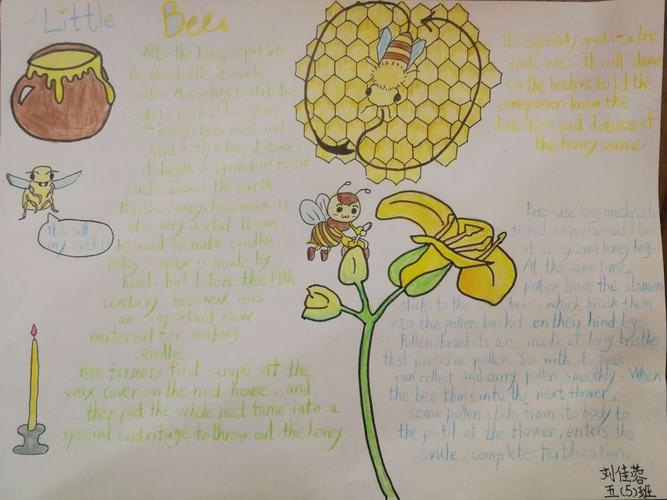 Little Bees
After the honey is put into
the glass bottle, it can be
According to statistics
honey, bees must
hard to fly a long distance,
its length is equivalent to six
circles around the earth.
Besides honey, beeswax is
also very useful. It can
be used to make candles.
wax is made by
hand, but before the 19th
century, beeswax was
an important raw
material for making
candles.
Bee farmers first scrape off the
wax cover on the nest house, and
then put the whole nest fame into a
special centrifuge to throw out the honey.
It's all
my credit!
It's especially good if a bee
finds one. It will dance
on the beehive to let the
companion know the
direction and distance of
the honey source.
Bees use long mouthparts
to
own honey bag.
At the same time,
pollen from the stamens
sticks to the bees, which brush them
into the pollen basket on their hind legs.
Pollen baskets are made of long bristles
that preserve pollen. Yes with it, bees
can collect and carry pollen smoothly. When
the bee flies into the next flower,
some pollen sticks from its body to
the pistil of the flower, enters the
ovule, completes fertilization.
刘佳蓉
五(5)班